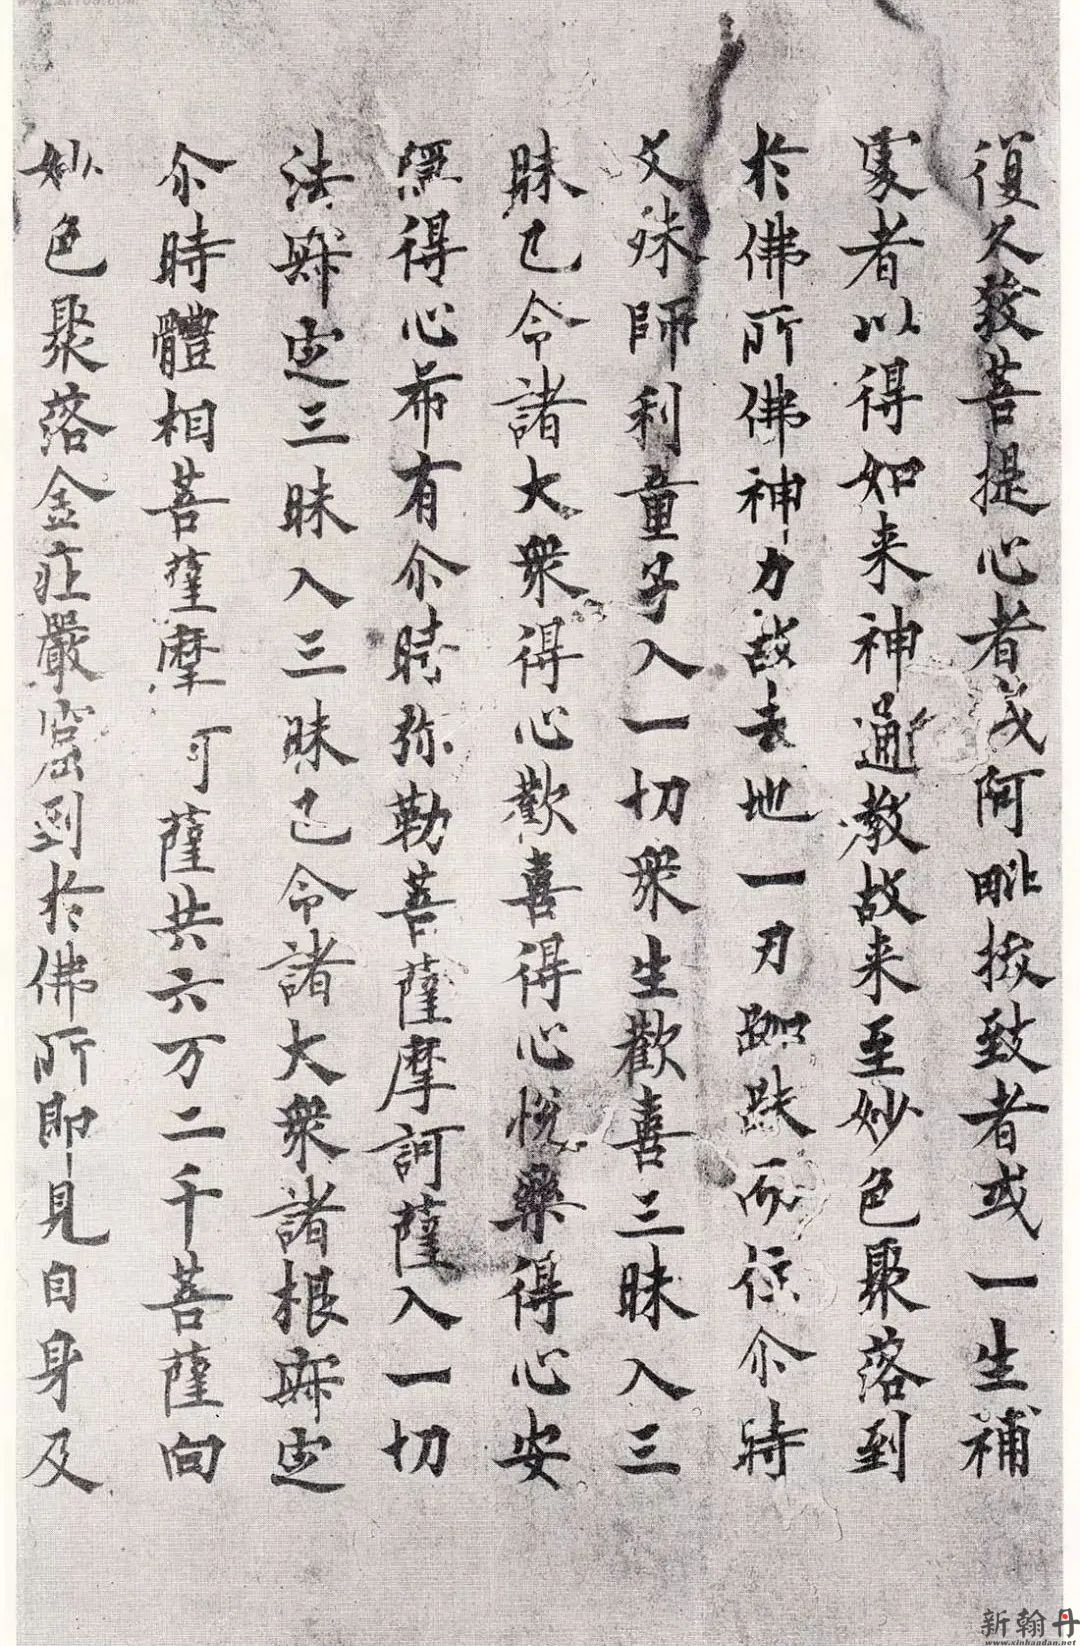 復久發菩提心者或阿毗拔致者或一生補
處者以得如来神通教故来至妙色聚落到
於佛所佛神力故去地一刃跏趺而住尒時
文殊師利童子入一切衆生歡喜三昧入三
昧已令諸大衆得心歡喜得心悦樂得心安
隱得心希有尒時弥勒菩薩摩訶薩入一切
法寂定三昧入三昧已令諸大衆諸根寂定
尒時體相菩薩摩訶薩共六万二千菩薩向
妙色聚落金莊嚴窟到於佛所即見自身及
新翰丹
www.xinhandan.net